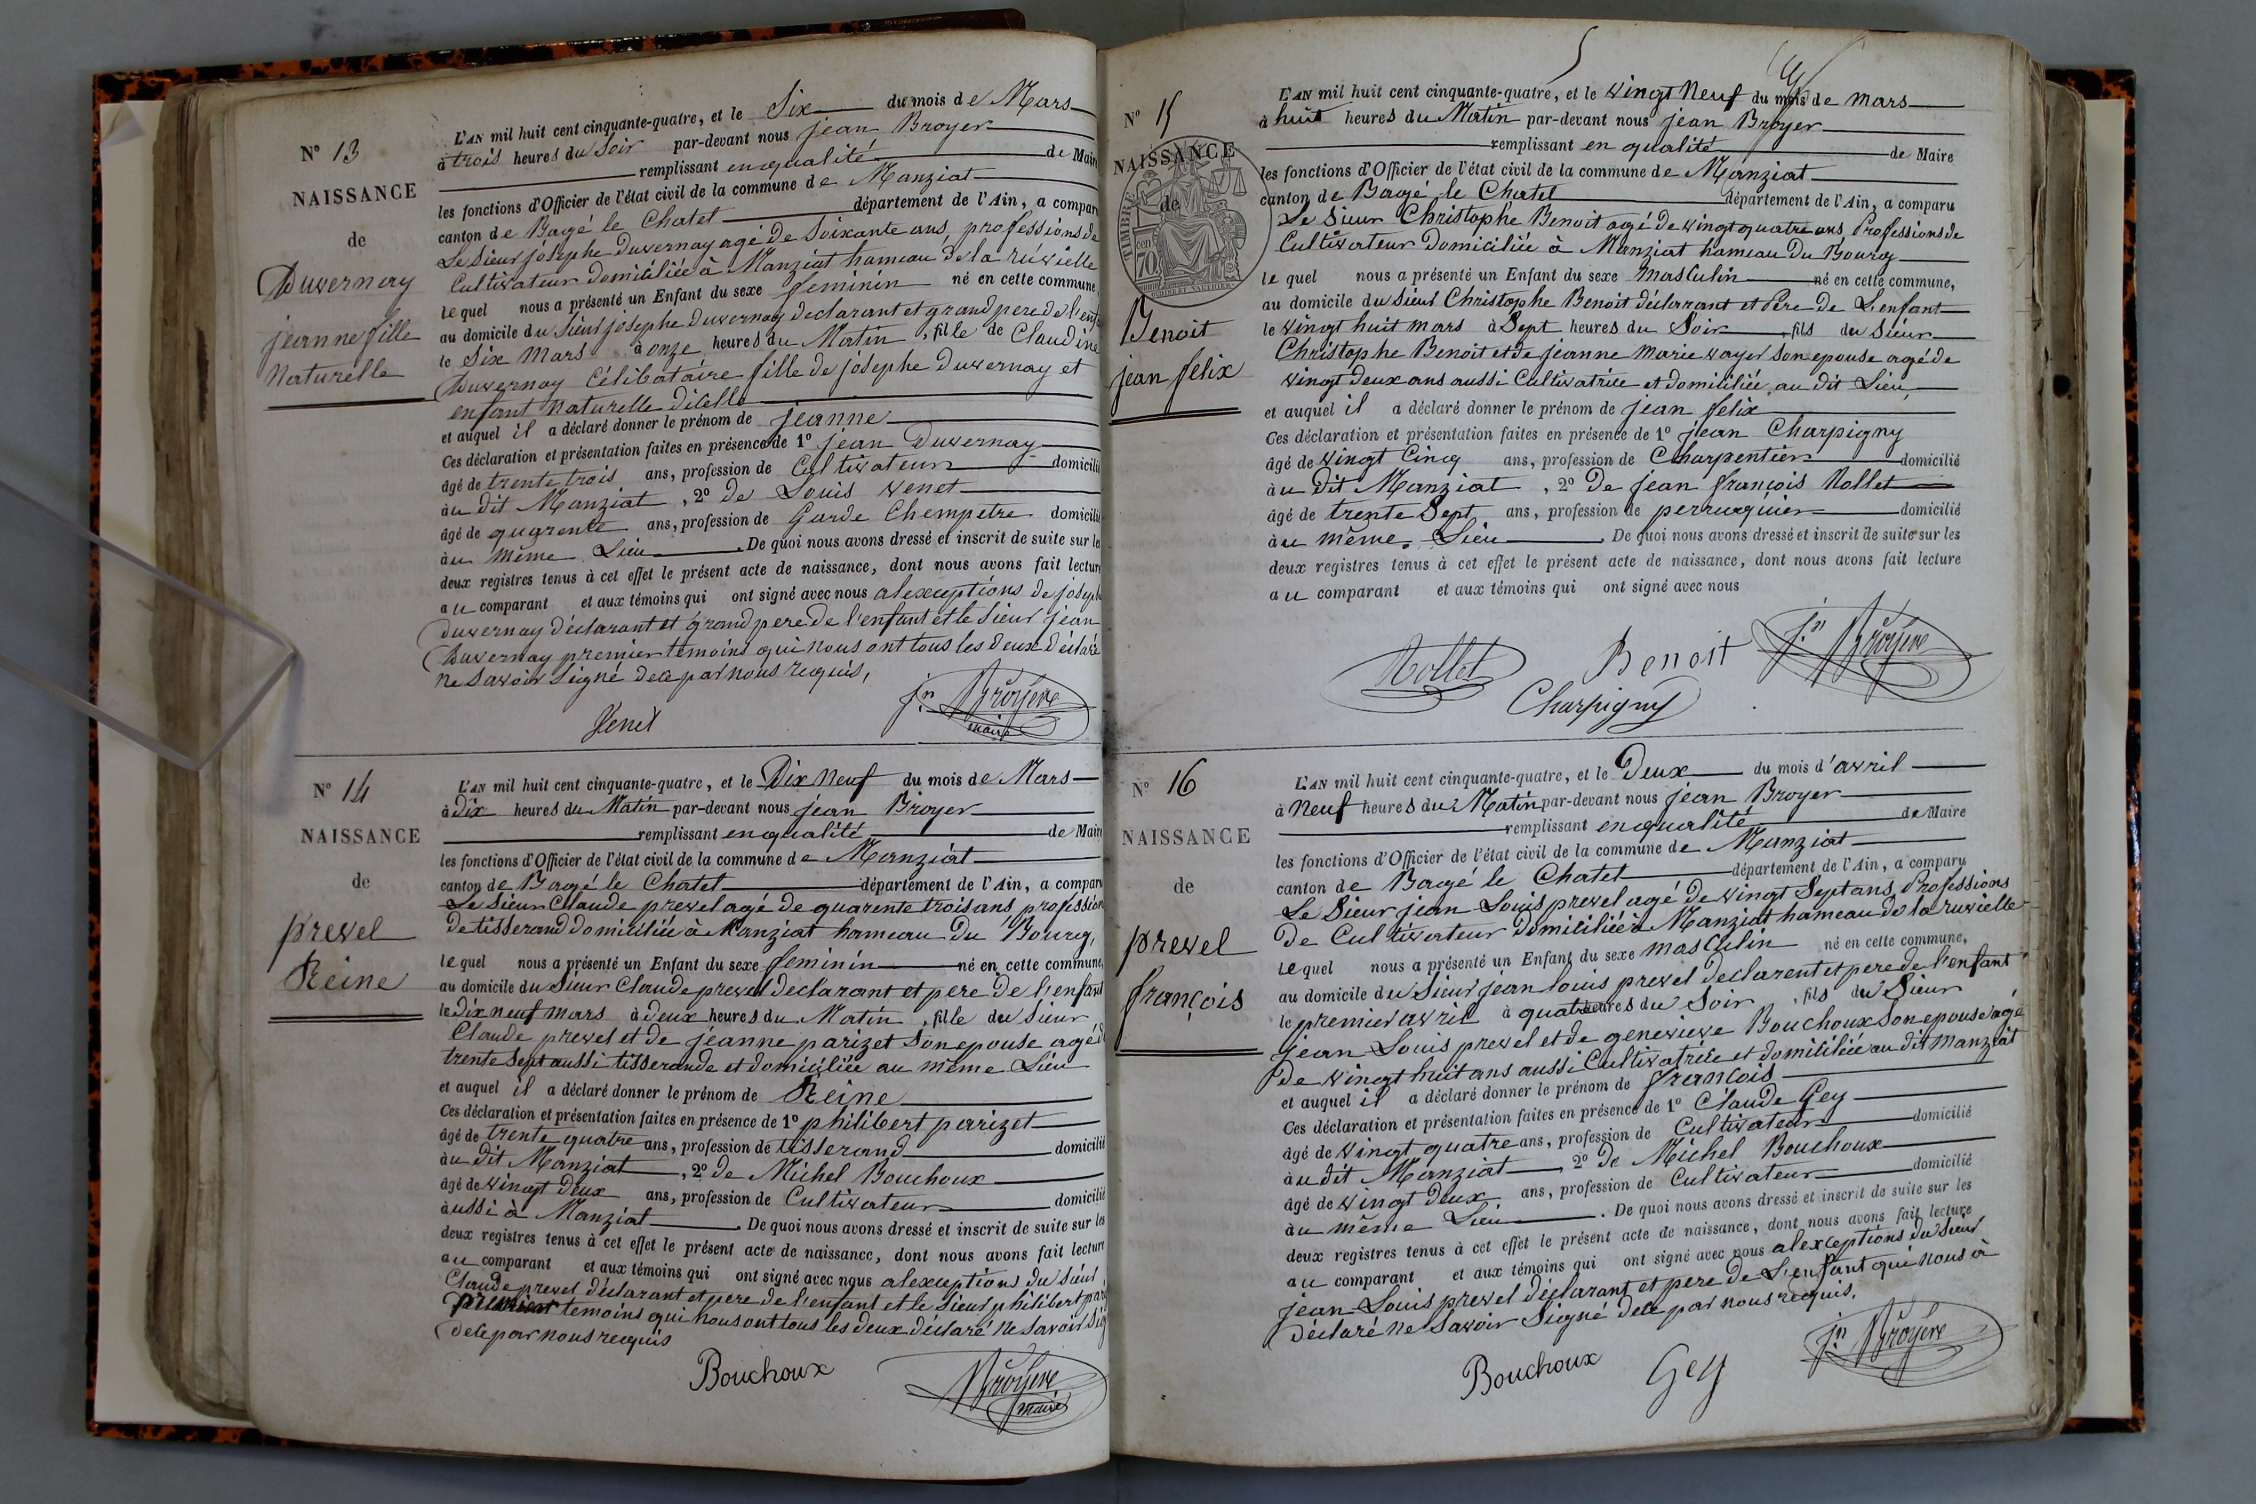 N° 13
NAISSANCE
de
Duvernay
jeanne fille
Naturelle
L'AN mil huit cent cinquante-quatre, et le Six du mois de Mars
à trois heures du Soir par-devant nous jean Broyer
remplissant en qualité de Maire
les fonctions d'Officier de l'état civil de la commune de Manziat
canton de Bagé le Chatel département de l'Ain, a comparu
Le Sieur jósephe Duvernay agé de Soixante ans, professions de
Cultivateur domiciliée à Manziat hameau de la
lequel nous a présenté un Enfant du sexe feminin né en cette commune,
au domicile du Sieur jósephe Duvernay declarant et grand pere de l'enfa
le Six Mars à onze heures du Matin, fille de Claudine
Duvernay Célibataire fille de jósephe Duvernay et
enfant Naturelle dicelle
et auquel il a déclaré donner le prénom de jeanne
Ces déclaration et présentation faites en présence de 1° jean Duvernay
âgé de trente trois ans, profession de Cultivateur domicilié
àu dit Manziat, 2° de Louis Venet
âgé de quarente ans, profession de Garde Chempetre domicilié
àu même Lieu. De quoi nous avons dressé et inscrit de suite sur les
deux registres tenus à cet effet le présent acte de naissance, dont nous avons fait lecture
au comparant et aux témoins qui ont signé avec nous alexceptions de jóseph
Duvernay déclarant et grand pere de l'enfant et le Sieur jean
Duvernay premier temoins qui nous ont tous les deux déclaré
ne Savoir Signé dece par nous requis,
Venet
jn Broyere
maire
N° 14
NAISSANCE
de
prevel
Reine
L'AN mil huit cent cinquante-quatre, et le Dix Neuf du mois de Mars
à Dix heures du Matin par-devant nous jean Broyer
remplissant en qualité de Maire
les fonctions d'Officier de l'état civil de la commune de Manziat
canton de Bagé le Chatel département de l'Ain, a comparu
Le Sieur Claude prevel agé de quarente trois ans profession
de tisserand domiciliée à Manziat hameau du Bourg,
lequel nous a présenté un Enfant du sexe feminin né en cette commune,
au domicile du Sieur Claude prevel declarant et pere de l'enfant
le Dix neuf mars à deux heures du Matin, fille du Sieur
Claude prevel et de jeanne parizet Son epouse agé de
trente Sept aussi tisserande et domiciliée au même Lieu
et auquel il a déclaré donner le prénom de Reine
Ces déclaration et présentation faites en présence de 1° philibert parizet
âgé de trente quatre ans, profession de tisserand domicilié
àu dit Manziat, 2° de Michel Bouchoux
âgé de vingt deux ans, profession de Cultivateur domicilié
àussi à Manziat. De quoi nous avons dressé et inscrit de suite sur les
deux registres tenus à cet effet le présent acte de naissance, dont nous avons fait lecture
au comparant et aux témoins qui ont signé avec nous alexceptions du Sieur
Claude prevel déclarant et pere de l'enfant et le Sieur philibert
premier temoins qui nous ont tous les deux déclaré ne Savoir
dece par nous requis
Bouchoux
Broyere
maire
N° 15
NAISSANCE
de
TIMBRE
70
Benoit
jean félix
L'AN mil huit cent cinquante-quatre, et le vingt Neuf du mois de mars
à huit heures du Matin par-devant nous jean Broyer
remplissant en qualité de Maire
les fonctions d'Officier de l'état civil de la commune de Manziat
canton de Bagé le Chatel département de l'Ain, a comparu
Le Sieur Christophe Benoit agé de vingt quatre ans, Professions de
Cultivateur Domiciliée à Manziat hameau Du Bourg
lequel nous a présenté un Enfant du sexe masculin né en cette commune,
au domicile du Sieur Christophe Benoit déclarant et Père de L'enfant
le vingt huit mars à Sept heures du Soir, fils du Sieur
Christophe Benoit et de jeanne Marie Son epouse agé de
vingt deux ans aussi Cultivatrice et domiciliée au dit Lieu,
et auquel il a déclaré donner le prénom de jean felix
Ces déclaration et présentation faites en présence de 1° jean Charpigny
âgé de vingt Cinq ans, profession de Charpentier domicilié
àu dit Manziat, 2° De jean françois Nollet
âgé de trente Sept ans, profession de perruquier domicilié
àu même Lieu. De quoi nous avons dressé et inscrit de suite sur les
deux registres tenus à cet effet le présent acte de naissance, dont nous avons fait lecture
au comparant et aux témoins qui ont signé avec nous
Nollet
Benoit
jn Broyere
Charpigny
N° 16
NAISSANCE
de
prevel
françois
L'AN mil huit cent cinquante-quatre, et le Deux du mois d'avril
à Neuf heures du Matin par-devant nous jean Broyer
remplissant en qualité de Maire
les fonctions d'Officier de l'état civil de la commune de Manziat
canton de Bagé le Chatel département de l'Ain, a comparu
Le Sieur jean Louis prevel agé de vingt Sept ans, Professions
De Cultivateur Domiciliée à Manziat hameau de la
lequel nous a présenté un Enfant du sexe masculin né en cette commune,
au domicile du Sieur jean louis prevel declarent et pere de l'enfant
le premier avril à quatre heures du Soir, fils du Sieur
jean Louis prevel et de genevieve Bouchoux Son epouse agé
De vingt huit ans aussi Cultivatrice et domiciliée au dit Manziat
et auquel il a déclaré donner le prénom de françois
Ces déclaration et présentation faites en présence de 1° Claude Gey
âgé de vingt quatre ans, profession de Cultivateur domicilié
àu dit Manziat, 2° De Michel Bouchoux
âgé de vingt deux ans, profession de Cultivateur domicilié
àu même Lieu. De quoi nous avons dressé et inscrit de suite sur les
deux registres tenus à cet effet le présent acte de naissance, dont nous avons fait lecture
au comparant et aux témoins qui ont signé avec nous alexceptions du Sieur
jean Louis prevel déclarant et pere De L'enfant qui nous à
Déclaré ne Savoir Signé dece par nous requis.
Bouchoux
Gey
jn Broyere